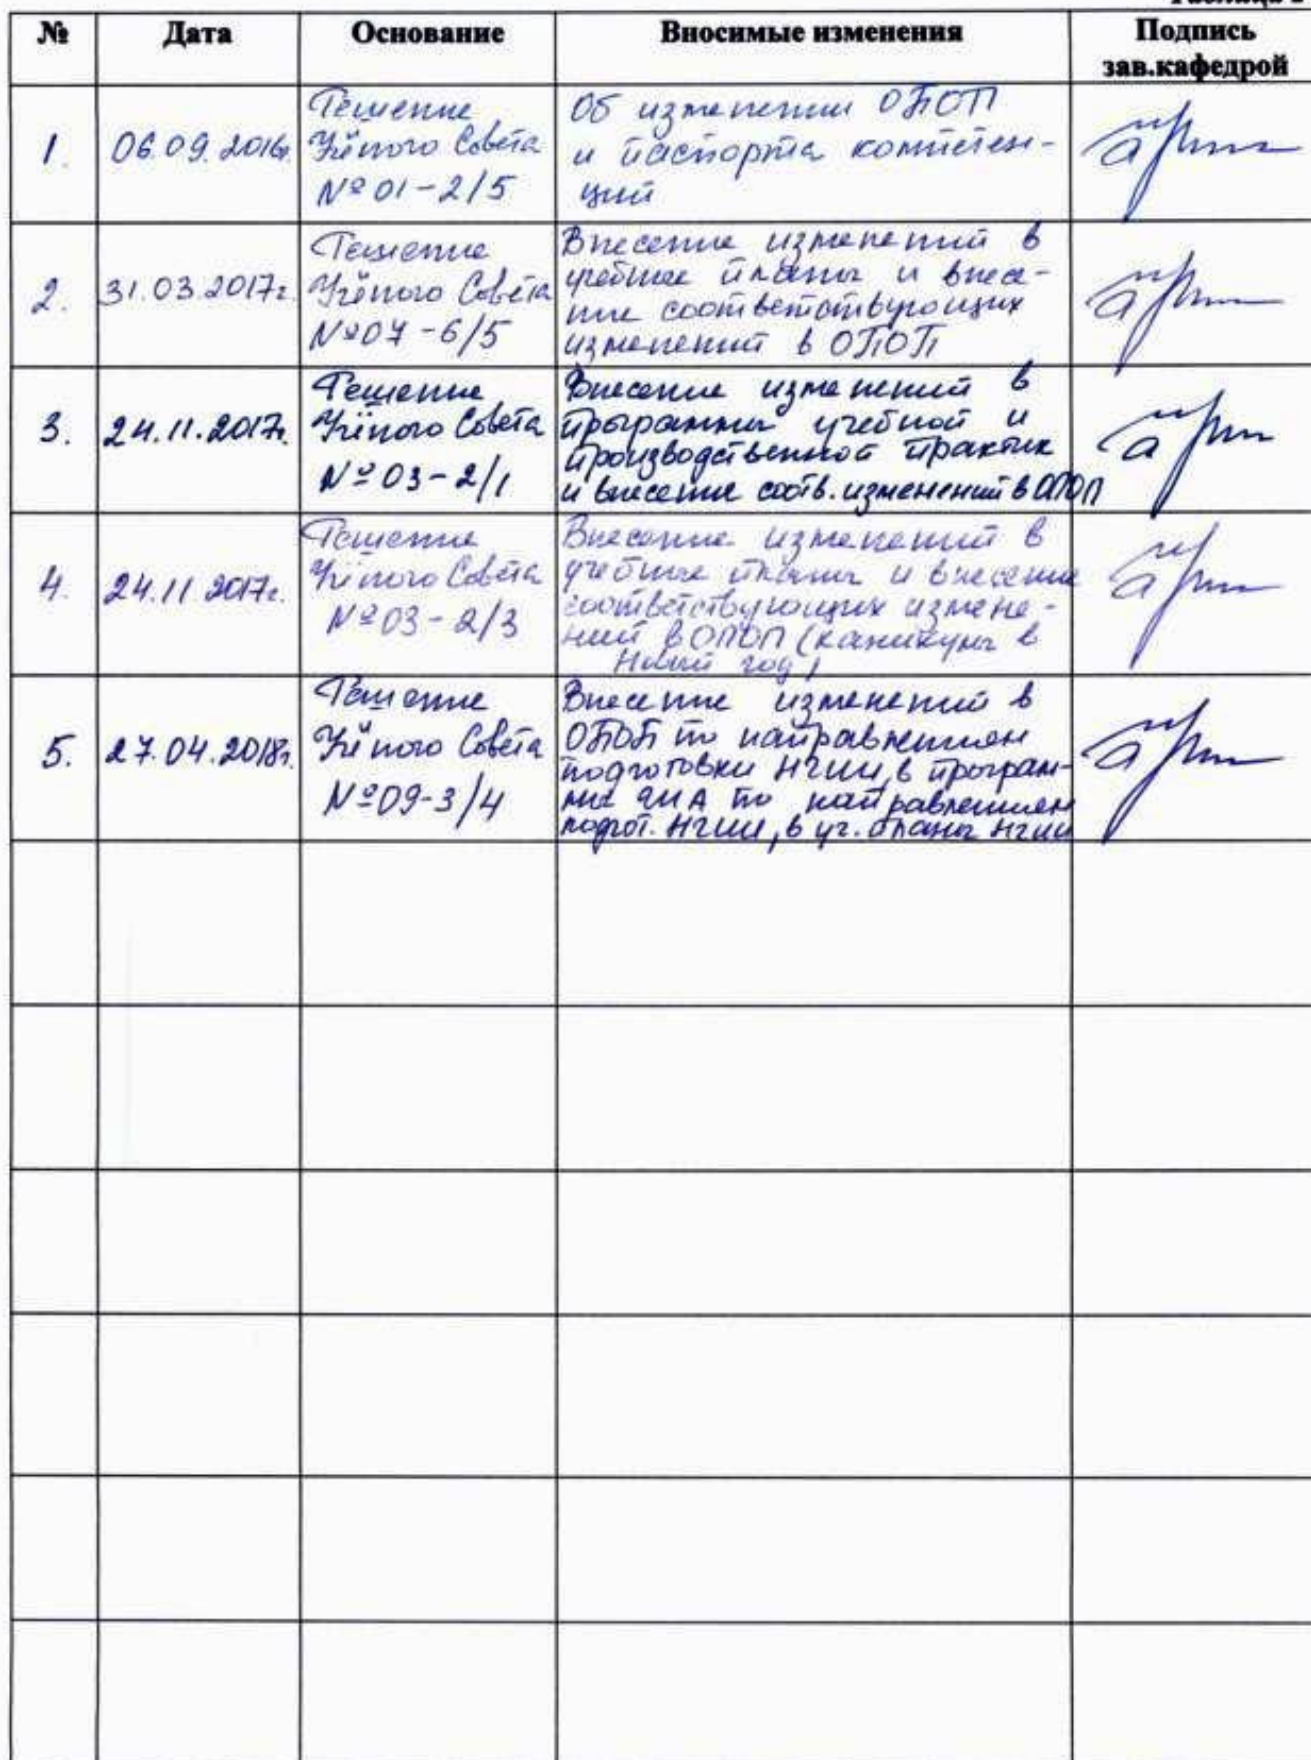 № Дата Основание Вносимые изменения Подпись
зав.кафедрой
1. 06.09.2016г. Решение
Учёного Совета
№ 01-2/5
Об изменении ОПОП
и паспорта компетен-
ций
2. 31.03.2017г. Решение
Учёного Совета
№ 07-6/5
Внесение изменений в
учебные планы и внесе-
ние соответствующих
изменений в ОПОП
3. 24.11.2017г. Решение
Учёного Совета
№ 03-2/1
Внесение изменений в
программы учебной и
производственной практик
и внесение соотв. изменений в ОПОП
4. 24.11.2017г. Решение
Учёного Совета
№ 03-2/3
Внесение изменений в
учебные планы и внесение
соответствующих измене-
ний в ОПОП (каникулы в
Новый год)
5. 27.04.2018г. Решение
Учёного Совета
№ 09-3/4
Внесение изменений в
ОПОП по направлениям
подготовки НГИИ, в програм-
мы ГИА по направлениям
подгот. НГИИ, в уч. планы НГИИ